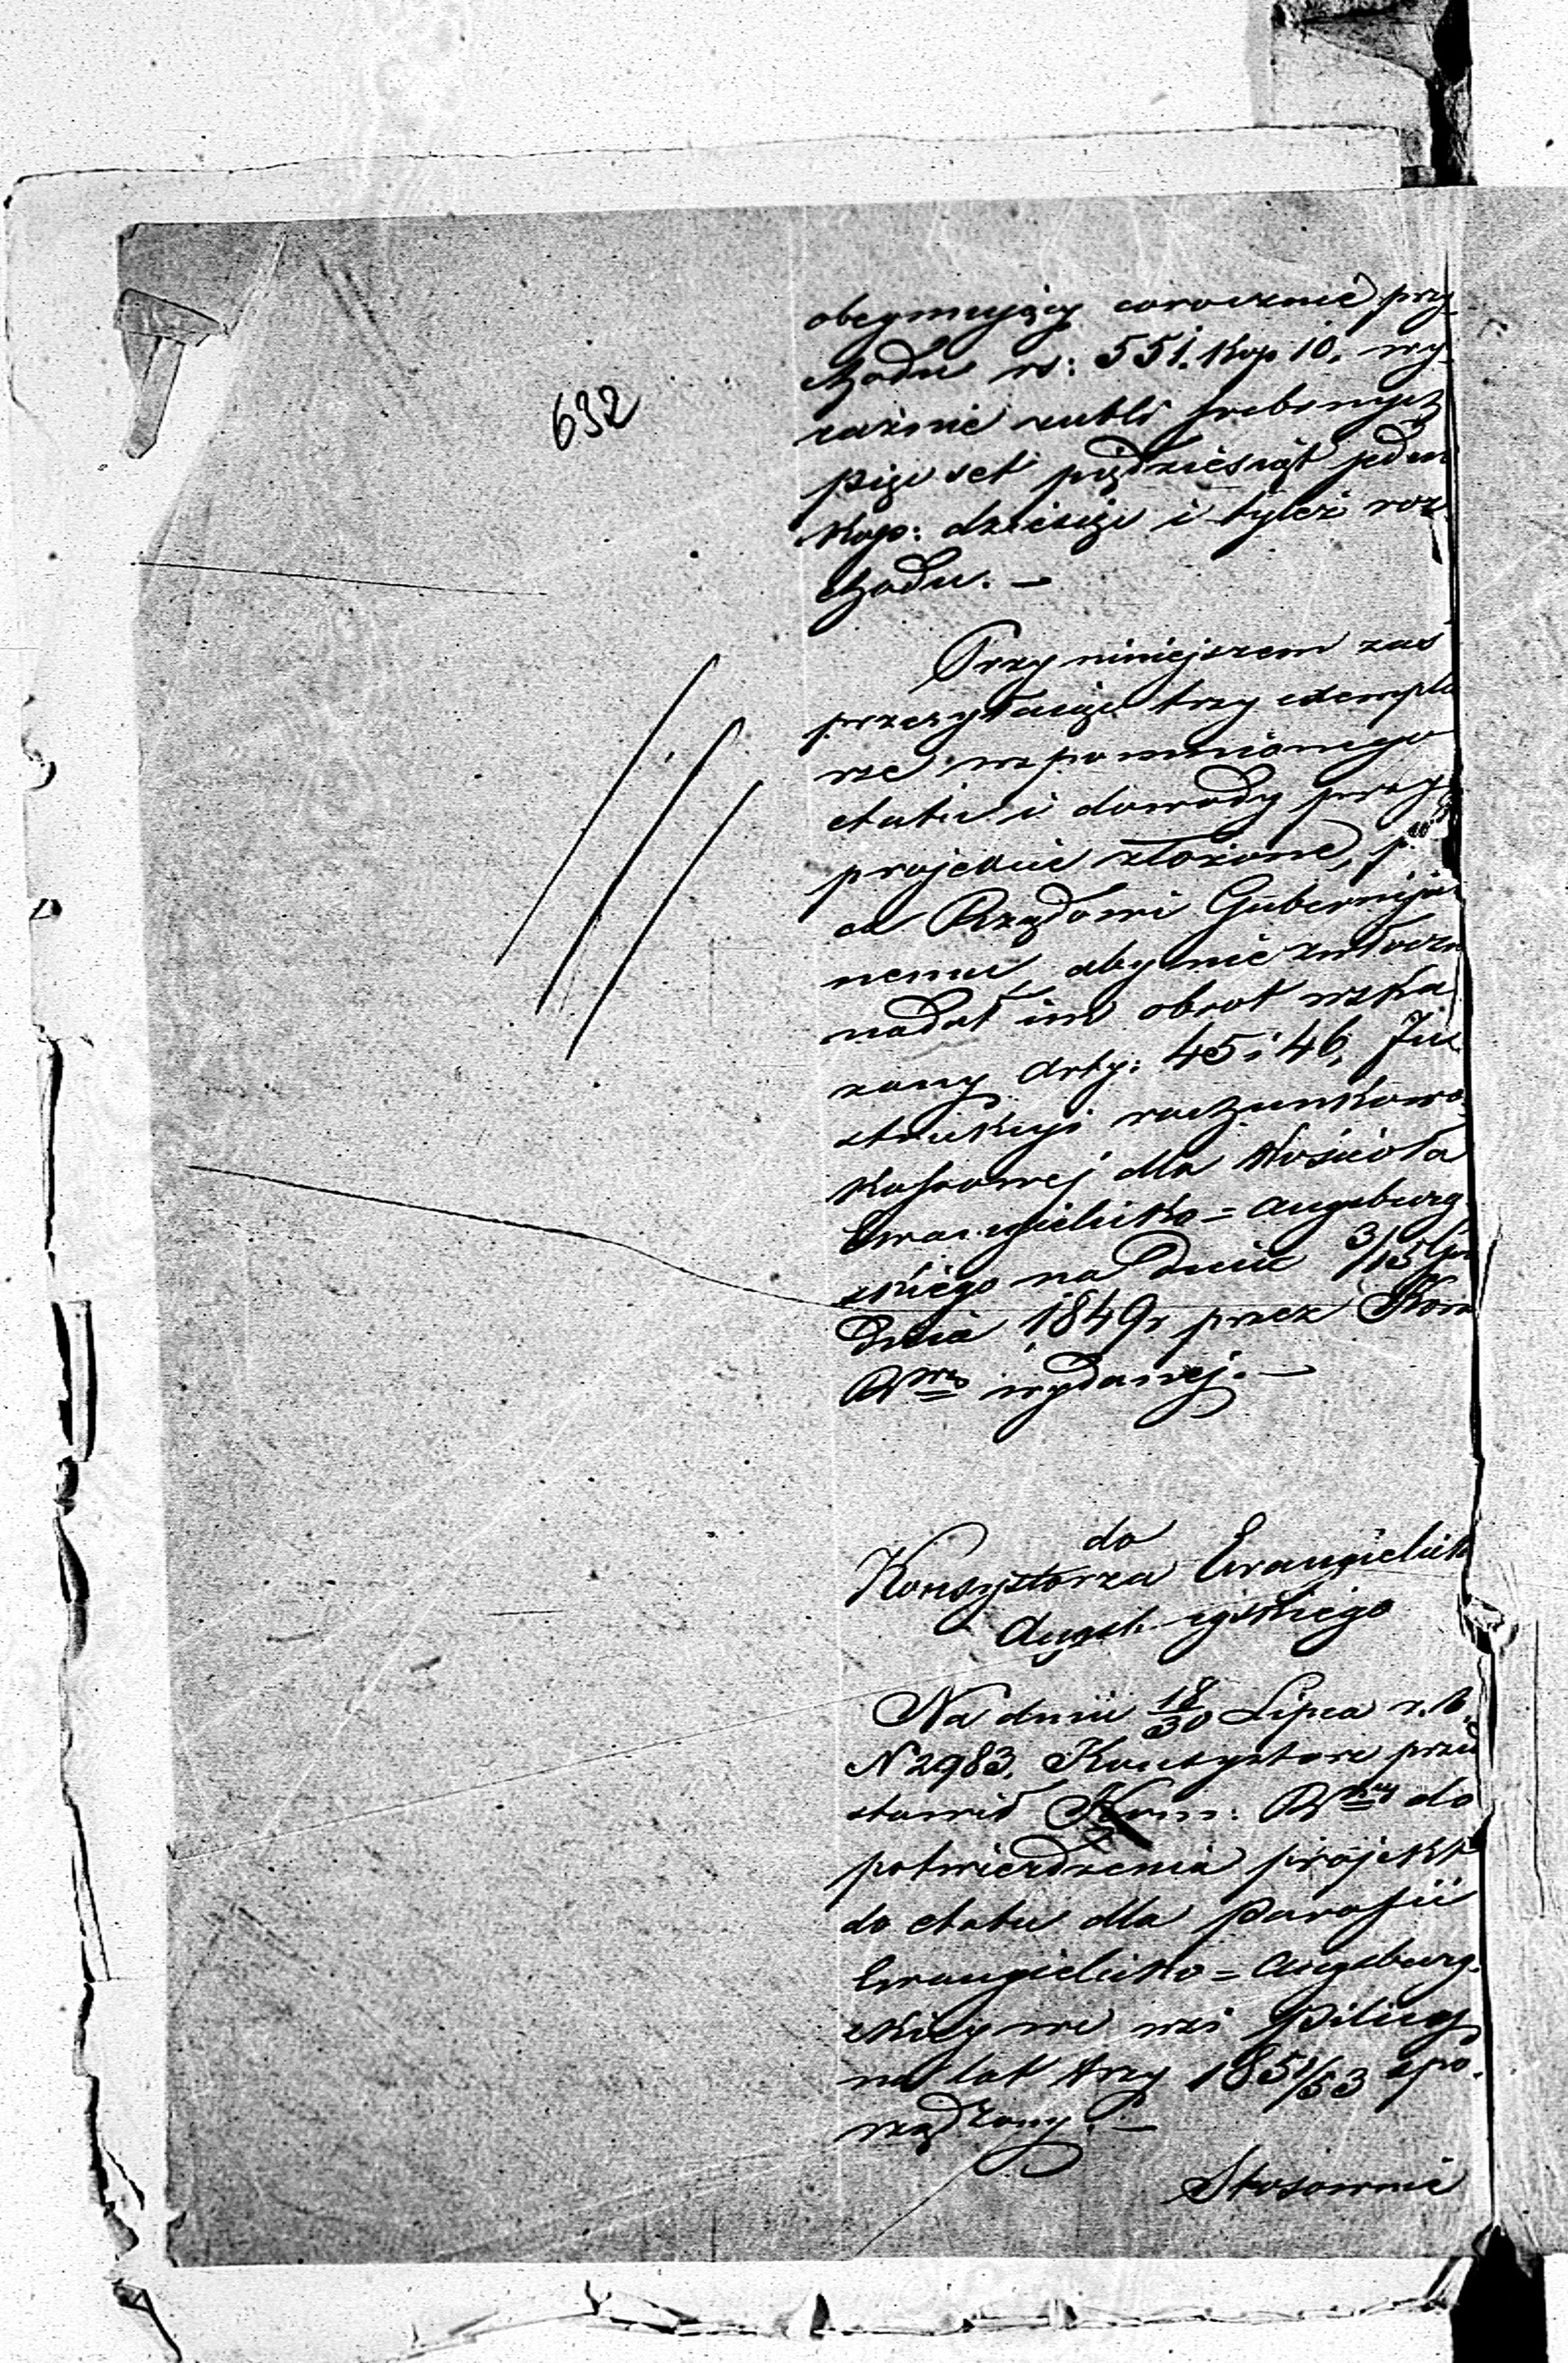 632
obeymujący corocznie przy-
chodu rs: 551. kop 10. wy-
raźnie rubli srebrnych
pięćset pięćdziesiąt jeden
kop: dziesięć i tyleż roz-
chodu. —
Przy niniejszem zaś
przesyłając trzy exempla
rze wspomnionego
etatu i dowody przy
projekcie złożone,
ca Rządowi Gubernijal
nemu, aby niezwłoczn
nadał im obrot wska
zany Arty: 45 i 46, In
strukcyi rachunkowo
kassowej dla Kościoła
Ewangielicko = Augsburg
skiego na dniu 3/15 Gru
dnia 1849 r przez Kom
Rwą wydanej. —
do
Konsystorza Ewangielick
Augsb. rgskiego
Na dniu 18/30 Lipca r. b.
N 2983. Konsystorz przed
stawił Kom: Rwey do
potwierdzenia projekt
do etatu dla Parafii
Ewangielicko = Augsburg.
skiey we wsi Pilicy
na lat trzy 1851/53 spo-
rządzony. —
Stosownie